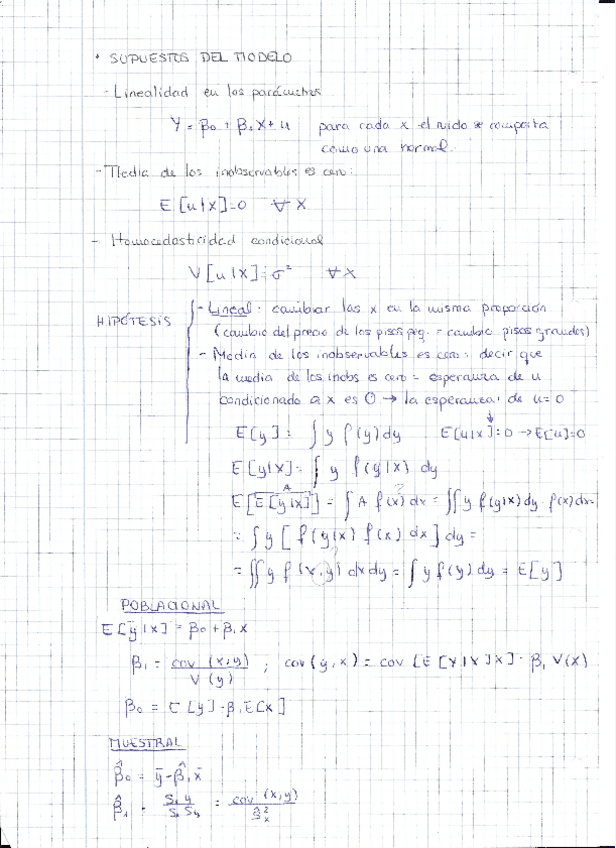 • SUPUESTOS DEL MODELO
- Linealidad en los parámetros
Y = β₀ + β₁X + u para cada x el ruido se comporta
como una normal.
- Media de los inobservables es cero:
E[u|x]=0 ∀x
- Homocedasticidad condicional
V[u|x]=σ² ∀x
HIPÓTESIS
- Lineal: cambiar las x en la misma proporción
(cambio del precio de los pisos peq. = cambio pisos grandes)
- Media de los inobservables es cero: decir que
la media de los inobs es cero = esperanza de u
condicionado a x es 0 → la esperanza de u=0
E[y] = ∫ y f(y)dy E[u|x]=0 → E[u]=0
E[y|x] = ∫ y f(y|x) dy
A ?
E[E[y|x]] = ∫ A f(x) dx = ∫∫ y f(y|x) dy · f(x) dx =
= ∫ y [ f(y|x) f(x) dx ] dy =
= ∫∫ y f(x,y) dx dy = ∫ y f(y) dy = E[y]
POBLACIONAL
E[y|x] = β₀ + β₁x
β₁ = cov(x,y) / V(y) ; cov(y,x) = cov[E[Y|X]X] · β₁ V(X)
β₀ = E[y] - β₁E[x]
MUESTRAL
β̂₀ = ȳ - β̂₁x̄
β̂₁ = = cov(x,y) / ŝ²ₓ